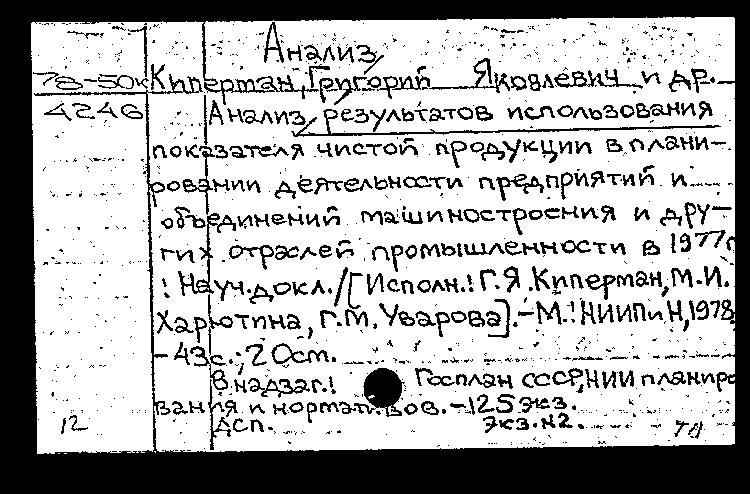 Анализ
78-50к Киперман, Григорий Яковлевич и др.
4246 Анализ результатов использования
показателя чистой продукции в плани-
ровании деятельности предприятий и
объединений машиностроения и дру-
гих отраслей промышленности в 1977г
: Науч.докл./[Исполн.: Г.Я.Киперман, М.И.
Харютина, Г.М. Уварова].-М.: НИИПиН, 1978.
-43с.; 20см.
В надзаг.: Госплан СССР, НИИ планиро
вания и нормативов. -125 экз.
12 Дсп. экз.№2.